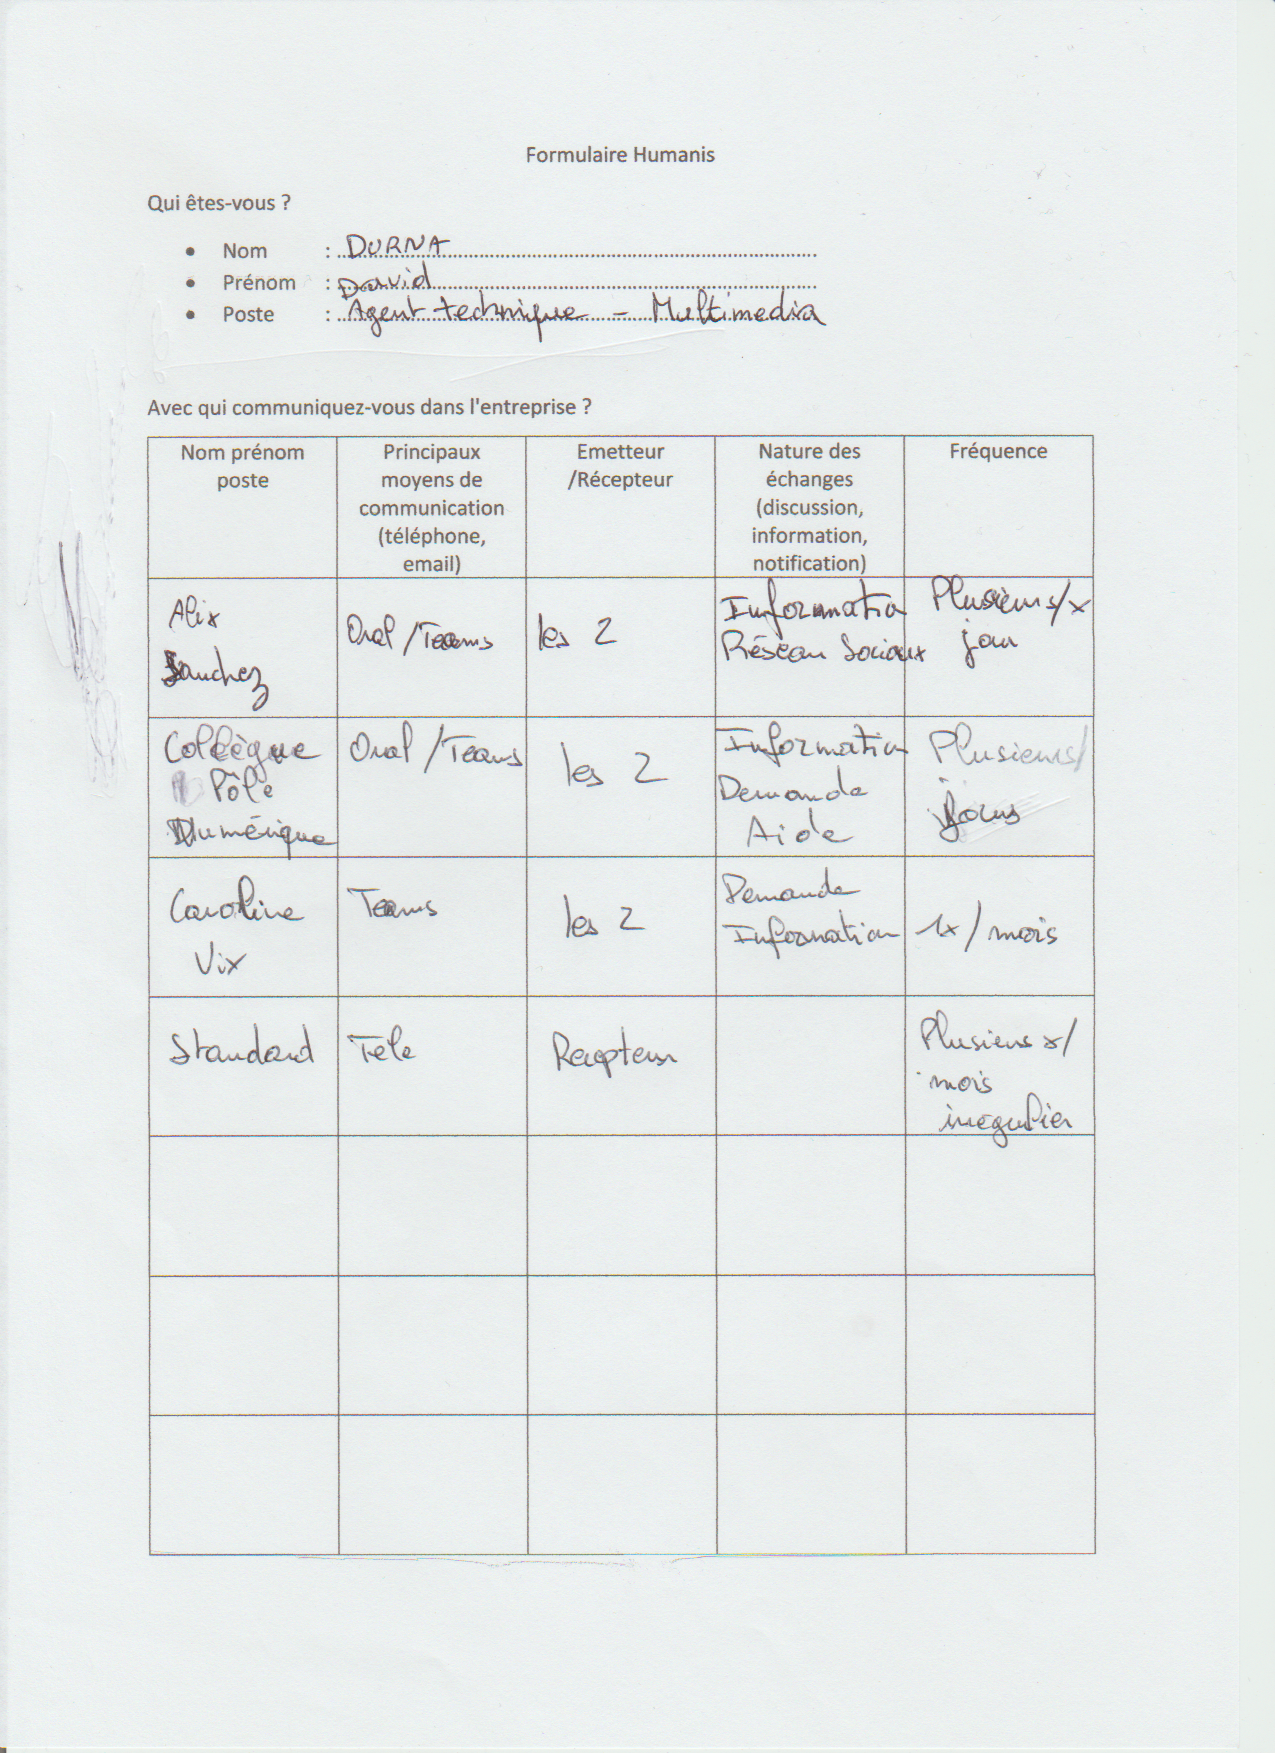 Formulaire Humanis
Qui êtes-vous ?
• Nom : DURNA
• Prénom : David
• Poste : Agent technique - Multimedia
Avec qui communiquez-vous dans l'entreprise ?
Nom prénom
poste
Principaux
moyens de
communication
(téléphone,
email)
Emetteur
/Récepteur
Nature des
échanges
(discussion,
information,
notification)
Fréquence
Alix
Sanchez
Oral / Teams
les 2
Information
Réseau Sociaux
Plusieurs/x
jour
Collègue
Pôle
Numérique
Oral / Teams
les 2
Information
Demande
Aide
Plusieurs/
jours
Caroline
Vix
Teams
les 2
Demande
Information
1x / mois
Standard
Tele
Recepteur
Plusieurs x/
mois
irregulier